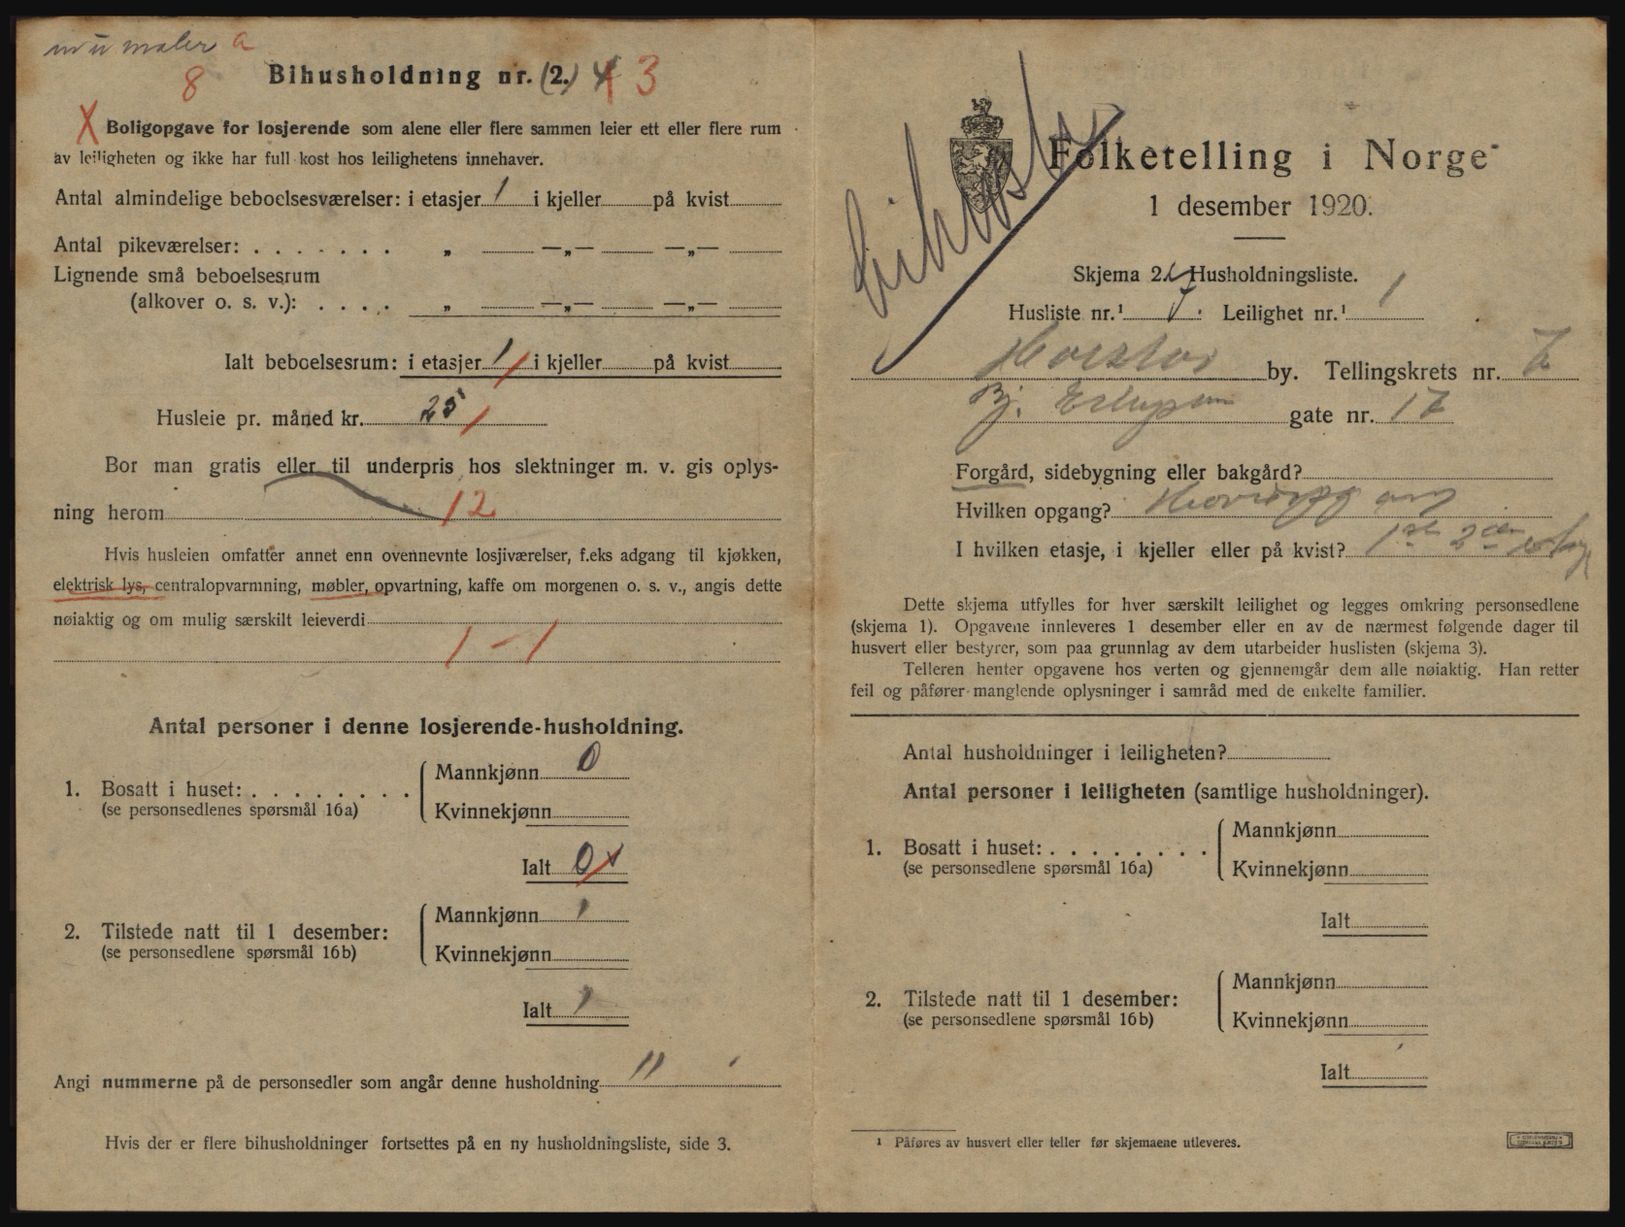 m ü maler a
8 Bihusholdning nr. (2.) 4 3
X Boligopgave for losjerende som alene eller flere sammen leier ett eller flere rum
av leiligheten og ikke har full kost hos leilighetens innehaver.
Antal almindelige beboelsesværelser: i etasjer 1 i kjeller på kvist
Antal pikeværelser: . . . . . . . „ —„— —„—
Lignende små beboelsesrum
(alkover o. s. v.): . . . . „ —„— —„—
Ialt beboelsesrum: i etasjer 1 / i kjeller på kvist
Husleie pr. måned kr. 25 /
Bor man gratis eller til underpris hos slektninger m. v. gis oplys-
ning herom 12
Hvis husleien omfatter annet enn ovennevnte losjiværelser, f.eks adgang til kjøkken,
elektrisk lys, centralopvarmning, møbler, opvartning, kaffe om morgenen o. s. v., angis dette
nøiaktig og om mulig særskilt leieverdi
1 - 1
Antal personer i denne losjerende-husholdning.
1. Bosatt i huset: . . . . . . . .
(se personsedlenes spørsmål 16a)
Mannkjønn 0
Kvinnekjønn
Ialt 0 x
2. Tilstede natt til 1 desember:
(se personsedlene spørsmål 16b)
Mannkjønn 1
Kvinnekjønn
Ialt 1
Angi nummerne på de personsedler som angår denne husholdning 11
Hvis der er flere bihusholdninger fortsettes på en ny husholdningsliste, side 3.
Folketelling i Norge
1 desember 1920.
Skjema 2. Husholdningsliste.
Husliste nr.¹ Leilighet nr.¹ 1
by. Tellingskrets nr. 7
Bj. gate nr. 17
Forgård, sidebygning eller bakgård?
Hvilken opgang?
I hvilken etasje, i kjeller eller på kvist? 1ste 2den
Dette skjema utfylles for hver særskilt leilighet og legges omkring personsedlene
(skjema 1). Opgavene innleveres 1 desember eller en av de nærmest følgende dager til
husvert eller bestyrer, som paa grunnlag av dem utarbeider huslisten (skjema 3).
Telleren henter opgavene hos verten og gjennemgår dem alle nøiaktig. Han retter
feil og påfører manglende oplysninger i samråd med de enkelte familier.
Antal husholdninger i leiligheten?
Antal personer i leiligheten (samtlige husholdninger).
1. Bosatt i huset: . . . . . . . .
(se personsedlene spørsmål 16a)
Mannkjønn
Kvinnekjønn
Ialt
2. Tilstede natt til 1 desember:
(se personsedlene spørsmål 16b)
Mannkjønn
Kvinnekjønn
Ialt
¹ Påføres av husvert eller teller før skjemaene utleveres.